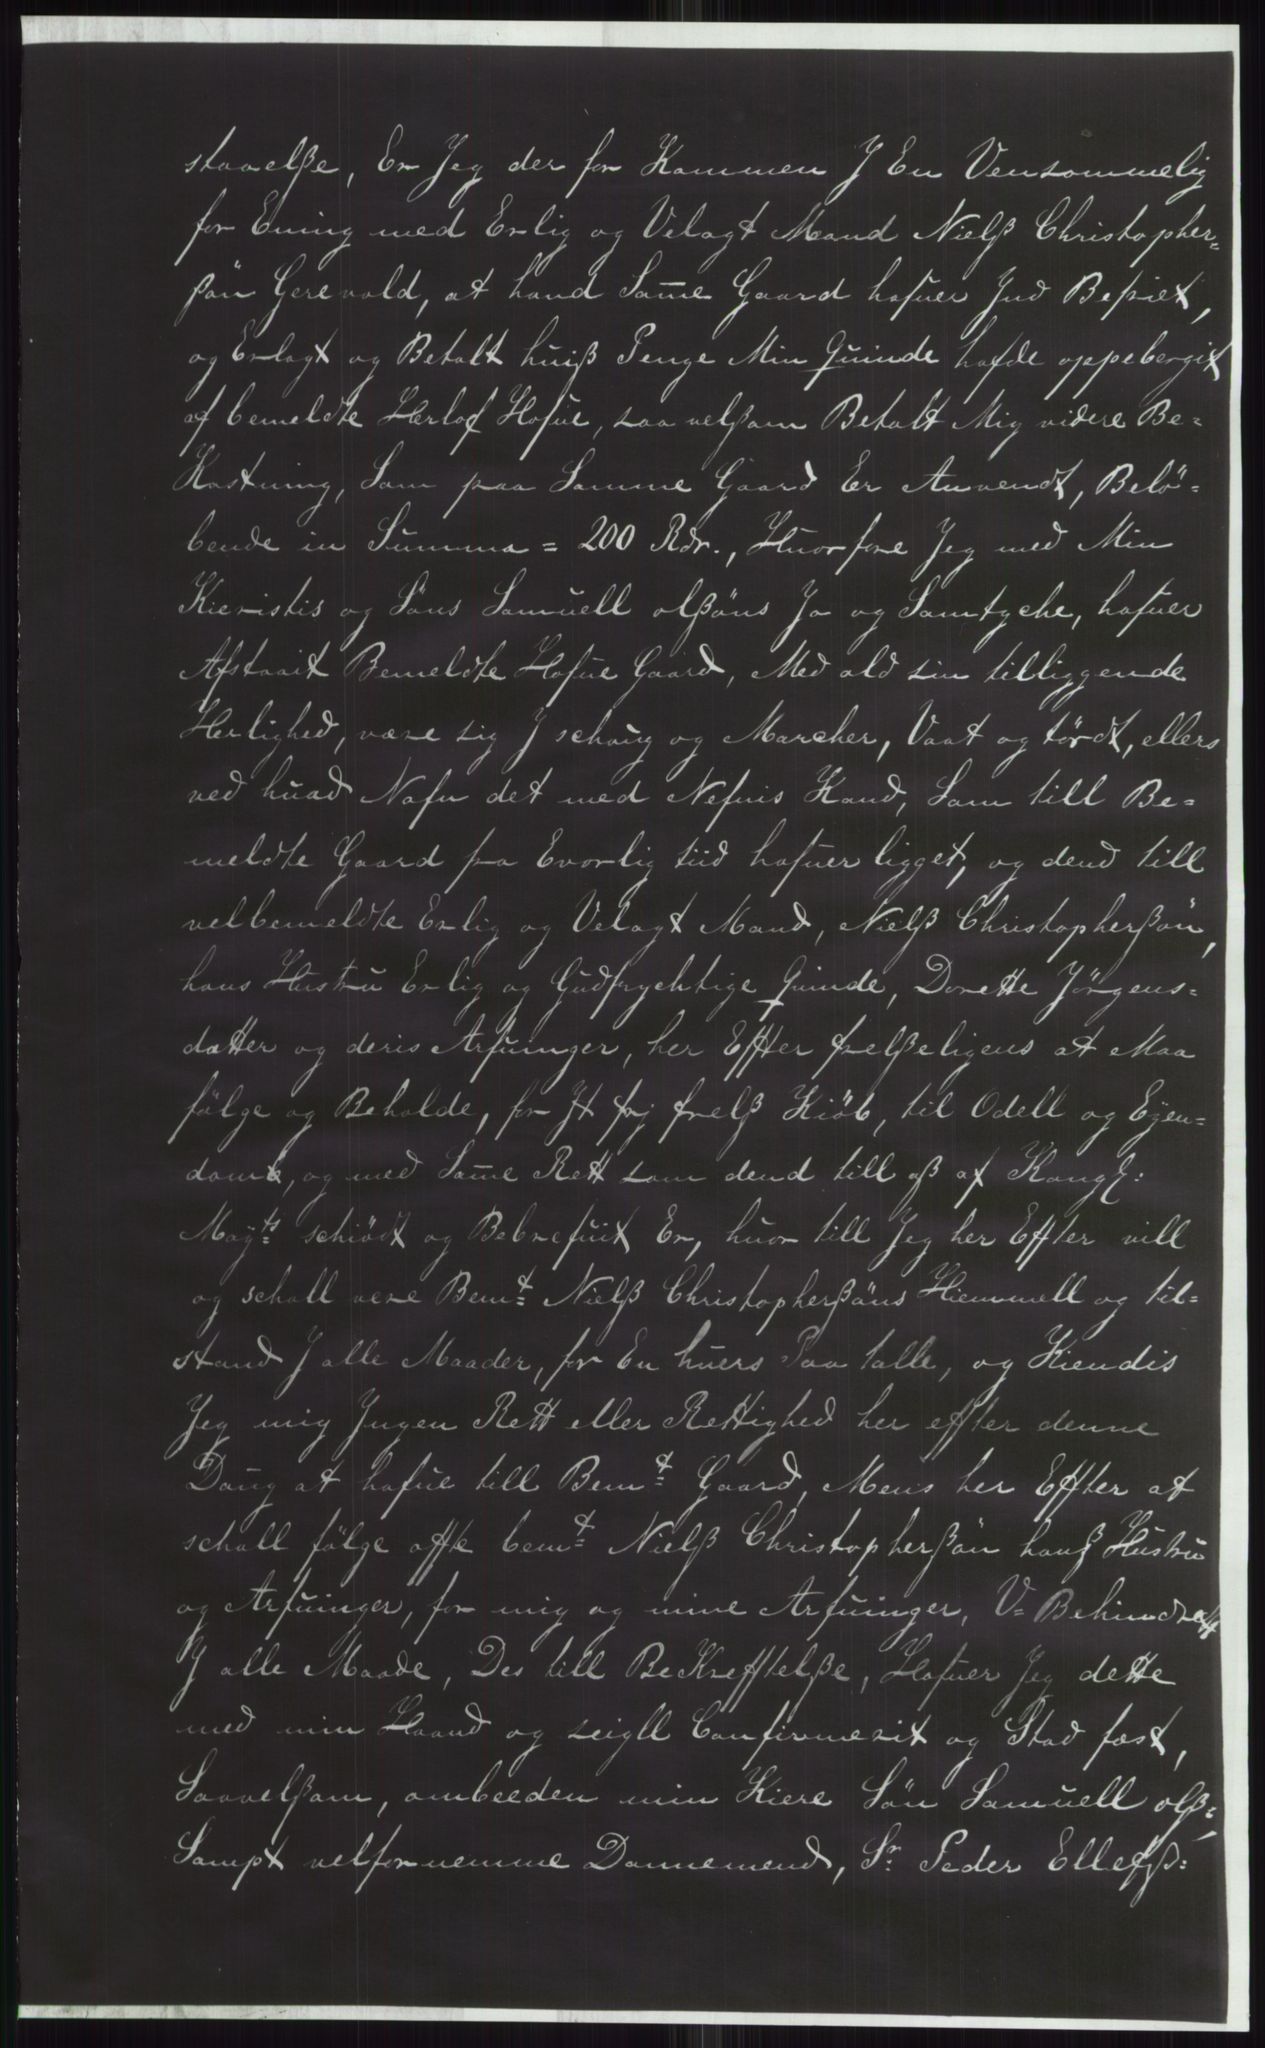 staaelße, Er Jeg der for Kommen J En Vensommelig
for Ening med Erlig og Velagt Mand Nielß Christopher=
ßön Gerevold, at hand Sam̄e Gaard hafuer Jnd Befriet,
og Erlagt og Betalt huiß Penge Min Quinde hafde oppebergit
af bemeldte Herlof Hofue, saa velßom Betalt Mig videre Be=
Kostning, Som paa Samme Gaard Er Anvendt, Belö=
bende in Summa = 200 Rdr., Huorfore Jeg med Min
Kieristis og Söns Samuell olßöns Ja og Samtyche, hafuer
Afstaait Bemeldte Hofue Gaard, Med ald sin tilliggende
Herlighed, være sig J schoug og Marcher, Vaat og tördt, ellers
ved huad Nafn det med Nefnis Kand, Som till Be=
meldte Gaard fra Evorlig tiid hafuer ligget, og dend till
velbemeldte Erlig og Velagt Mand, Nielß Christopherßön,
hans Hustru Erlig og Gudfrychtige Quinde, Dorette Jörgens=
datter og deris Arfuinger, her Effter frelßeligens at Maa
fölge og Beholde, for Jt frj frelß Kiöb, til Odell og Eyen=
domb, og med Sam̄e Rett som dend till oß af Kongl:
Mayts schiödt og Bebrefuit Er, huor till Jeg her Effter vill
og schall vere Bemt Nielß Christopherßöns Hiemmell og til=
stand J alle Maader, for En huers Paa talle, og Kiendis
Jeg mig Jngen Rett eller Rettighed her efter denne
Daug at hafue till Bemt Gaard, Mens her Effter at
schall fölge offte bemt Nielß Christopherßön hanß Hustru
og Arfuinger, for mig og mine Arfuinger, V= Behindrett
J alle Maade, Des till BeKrefftelße, Hafuer Jeg dette
med min Haand og seigll Confirmerit og Stad fæst,
Saavelßom, ombeeden min Kiere Sön Samuell olß=,
Sampt velfornemme Dannemend, Sr Peder Ellefß: